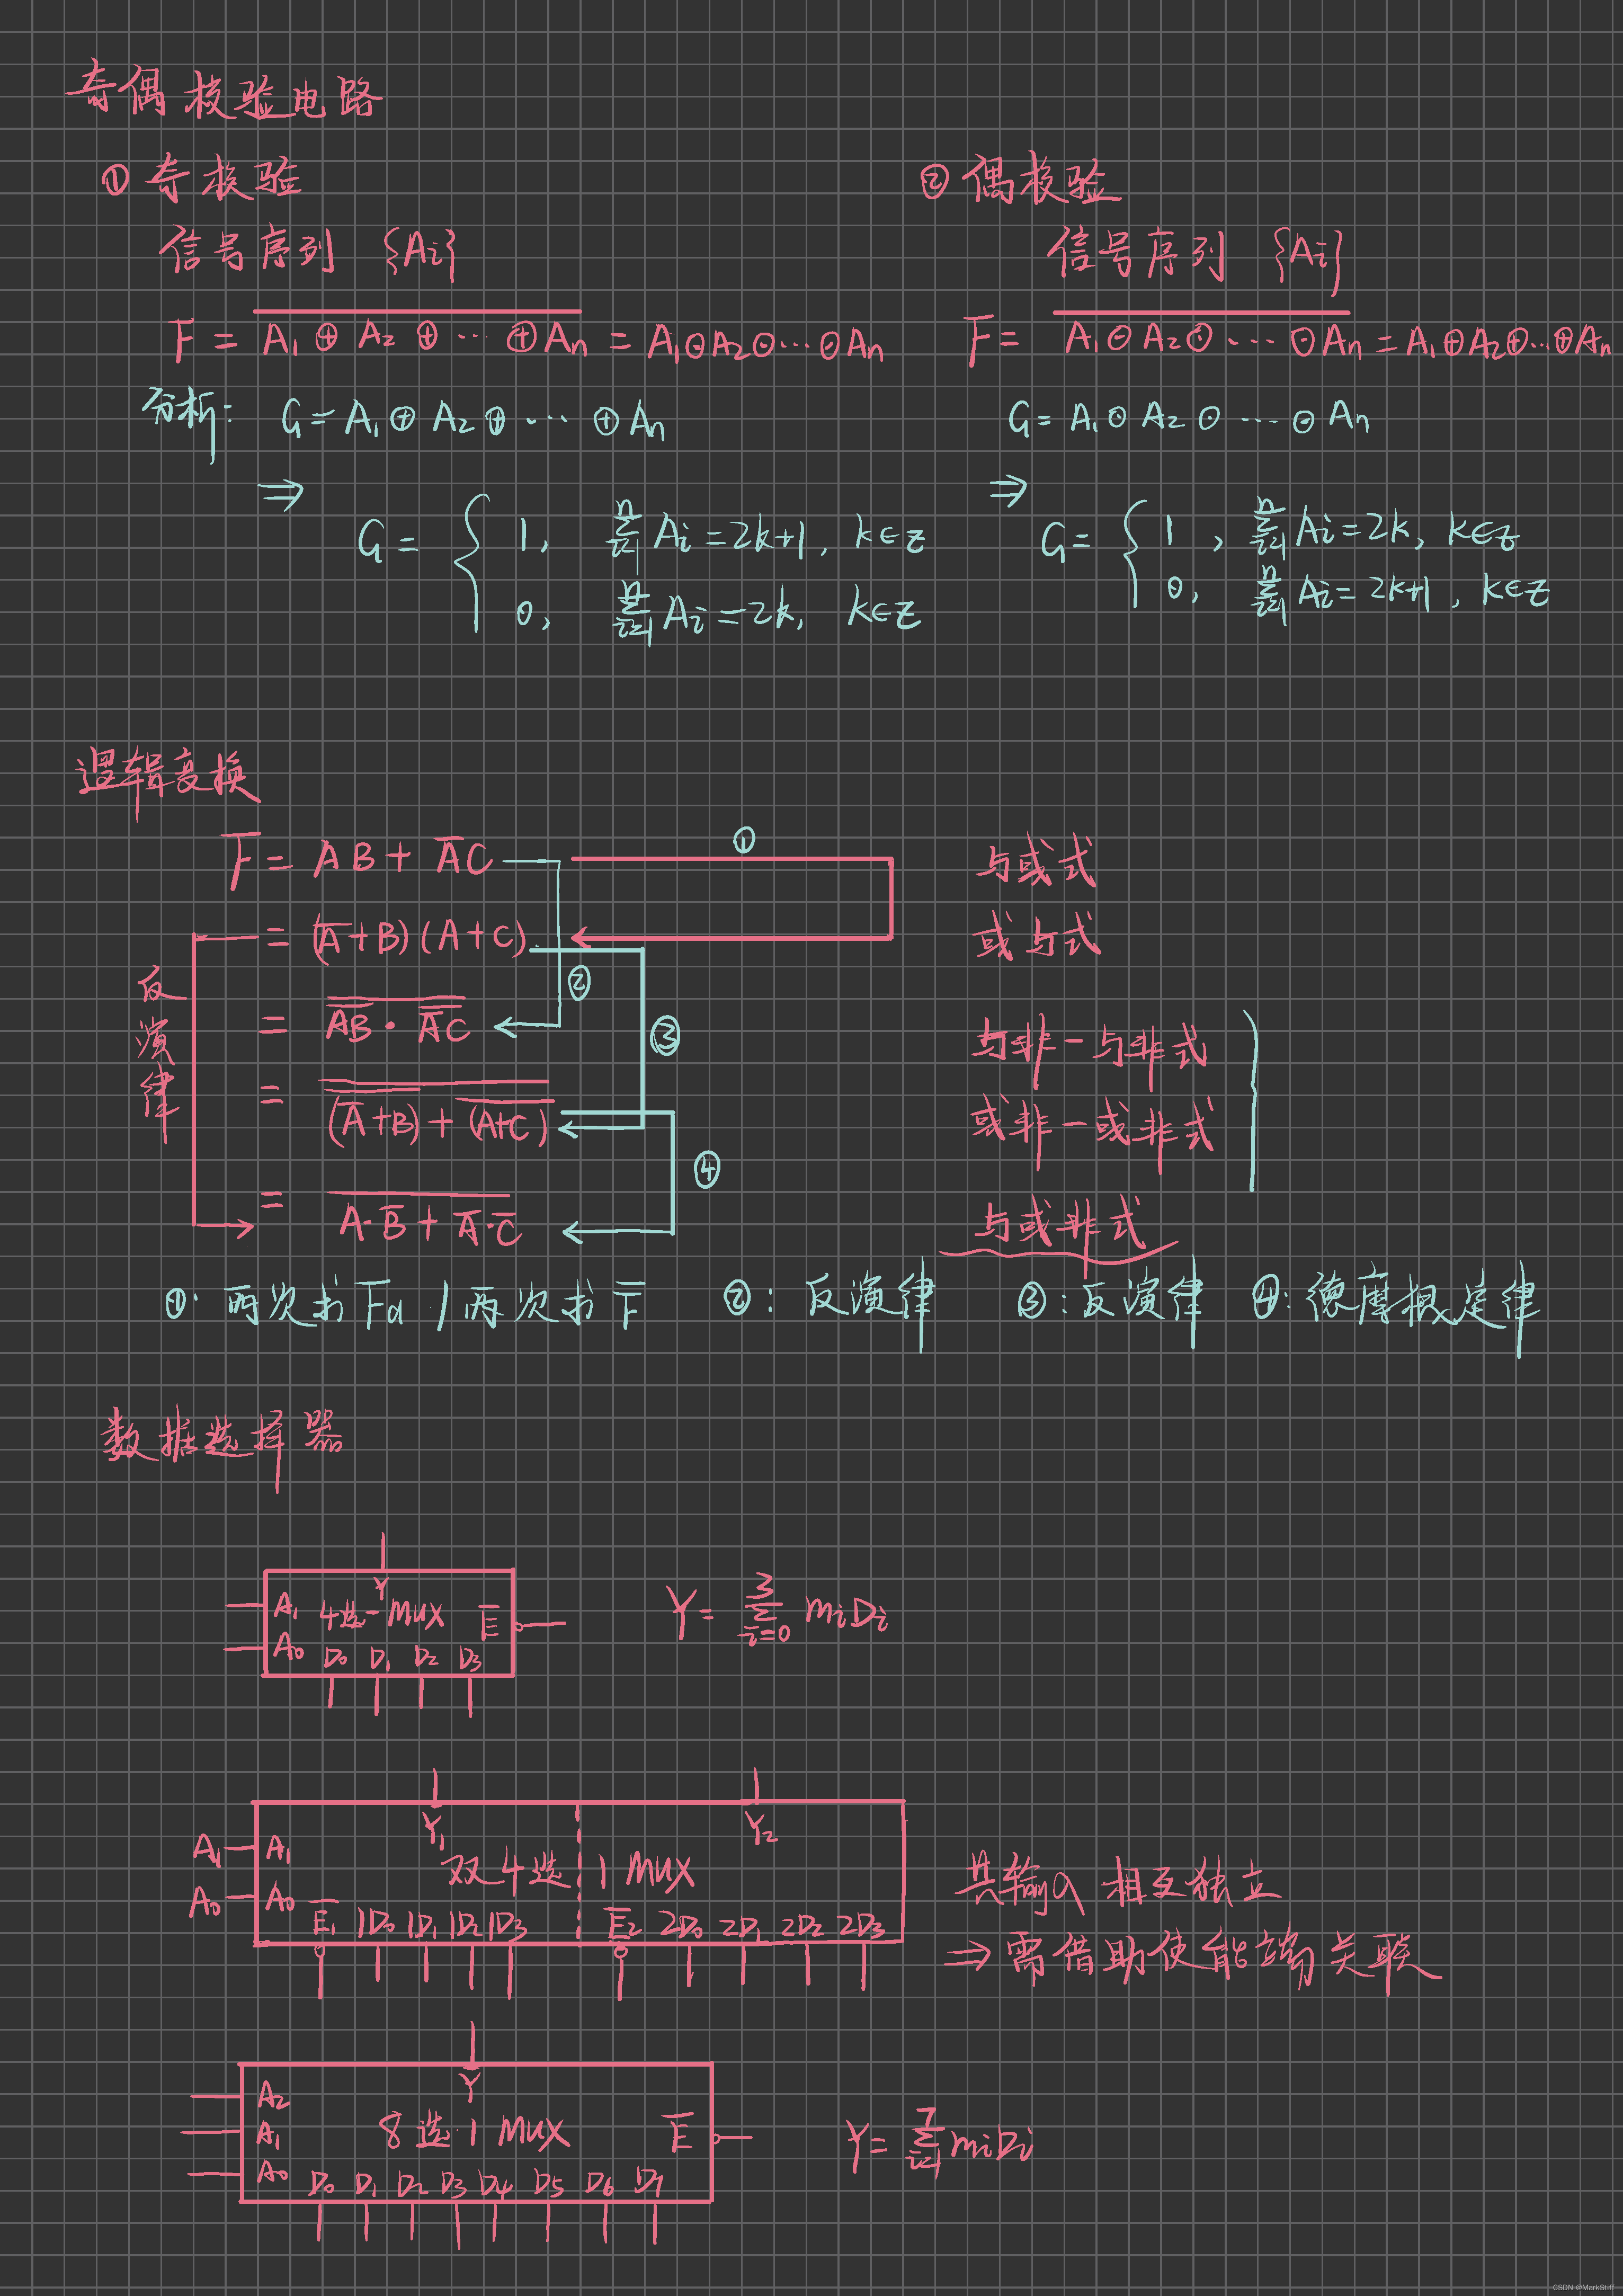 奇偶校验电路
① 奇校验
信号序列 {Ai}
F = \overline{A₁ ⊕ A₂ ⊕ ··· ⊕ An} = A₁⊙A₂⊙···⊙An
分析: G = A₁ ⊕ A₂ ⊕ ··· ⊕ An
⇒
G = { 1, \sum_{i=1}^{n} Ai = 2k+1, k∈Z
0, \sum_{i=1}^{n} Ai = 2k, k∈Z
② 偶校验
信号序列 {Ai}
F = \overline{A₁⊙A₂⊙···⊙An} = A₁⊕A₂⊕···⊕An
G = A₁⊙A₂⊙···⊙An
⇒
G = { 1, \sum_{i=1}^{n} Ai = 2k, k∈Z
0, \sum_{i=1}^{n} Ai = 2k+1, k∈Z
逻辑变换
F = AB + \overline{A}C ① 与或式
= (\overline{A}+B)(A+C) 或与式
反演律
②
= \overline{\overline{AB}·\overline{\overline{A}C}} 与非-与非式
③
= \overline{\overline{(\overline{A}+B)}+\overline{(A+C)}} 或非-或非式
④
= \overline{A·\overline{B}+\overline{A}·\overline{C}} 与或非式
①: 两次求Fd / 两次求F ②: 反演律 ③: 反演律 ④: 德摩根定律
数据选择器
Y
A₁ 4选一MUX \overline{E}
A₀ D₀ D₁ D₂ D₃
Y = \sum_{i=0}^{3} miDi
Y₁ Y₂
A₁ A₁
双4选1 MUX
A₀ A₀
\overline{E}₁ 1D₀ 1D₁ 1D₂ 1D₃ \overline{E}₂ 2D₀ 2D₁ 2D₂ 2D₃
共输入 相互独立
⇒ 需借助使能端关联
Y
A₂
A₁ 8选1 MUX \overline{E}
A₀ D₀ D₁ D₂ D₃ D₄ D₅ D₆ D₇
Y = \sum_{i=1}^{7} miDi
CSDN @MarkStiff